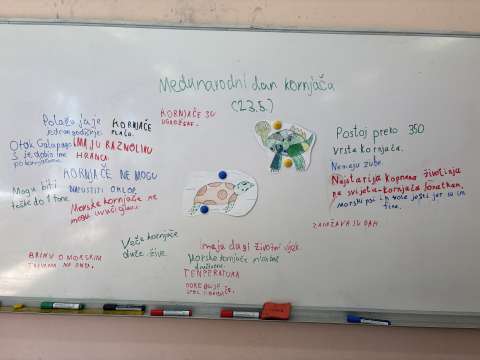 Međunarodni dan kornjača
(23.5.)
KORNJAČE SU
UGROŽENE.
Polažu jaja
jednom godišnje.
KORNJAČE
PLAČU.
Otok Galapagos
je dobio ime
po kornjačama.
IMAJU RAZNOLIKU
HRANU.
KORNJAČE NE MOGU
NAPUSTITI OKLOP.
Mogu biti
teške do 1 tone.
Morske kornjače ne
mogu uvući glavu.
Postoji preko 350
vrsta kornjača.
Nemaju zube.
Najstarija kopnena životinja
na svijetu-kornjača Jonathan.
morski psi ih vole jesti jer su im
fine.
ZADRŽAVAJU DAH
Veće kornjače
duže žive.
imaju dugi životni vijek.
Morske kornjače
TEMPERATURA
ODREĐUJE
SPOL KORNJAČE.
BRINU O MORSKIM
TRAVAMA NA DNU.